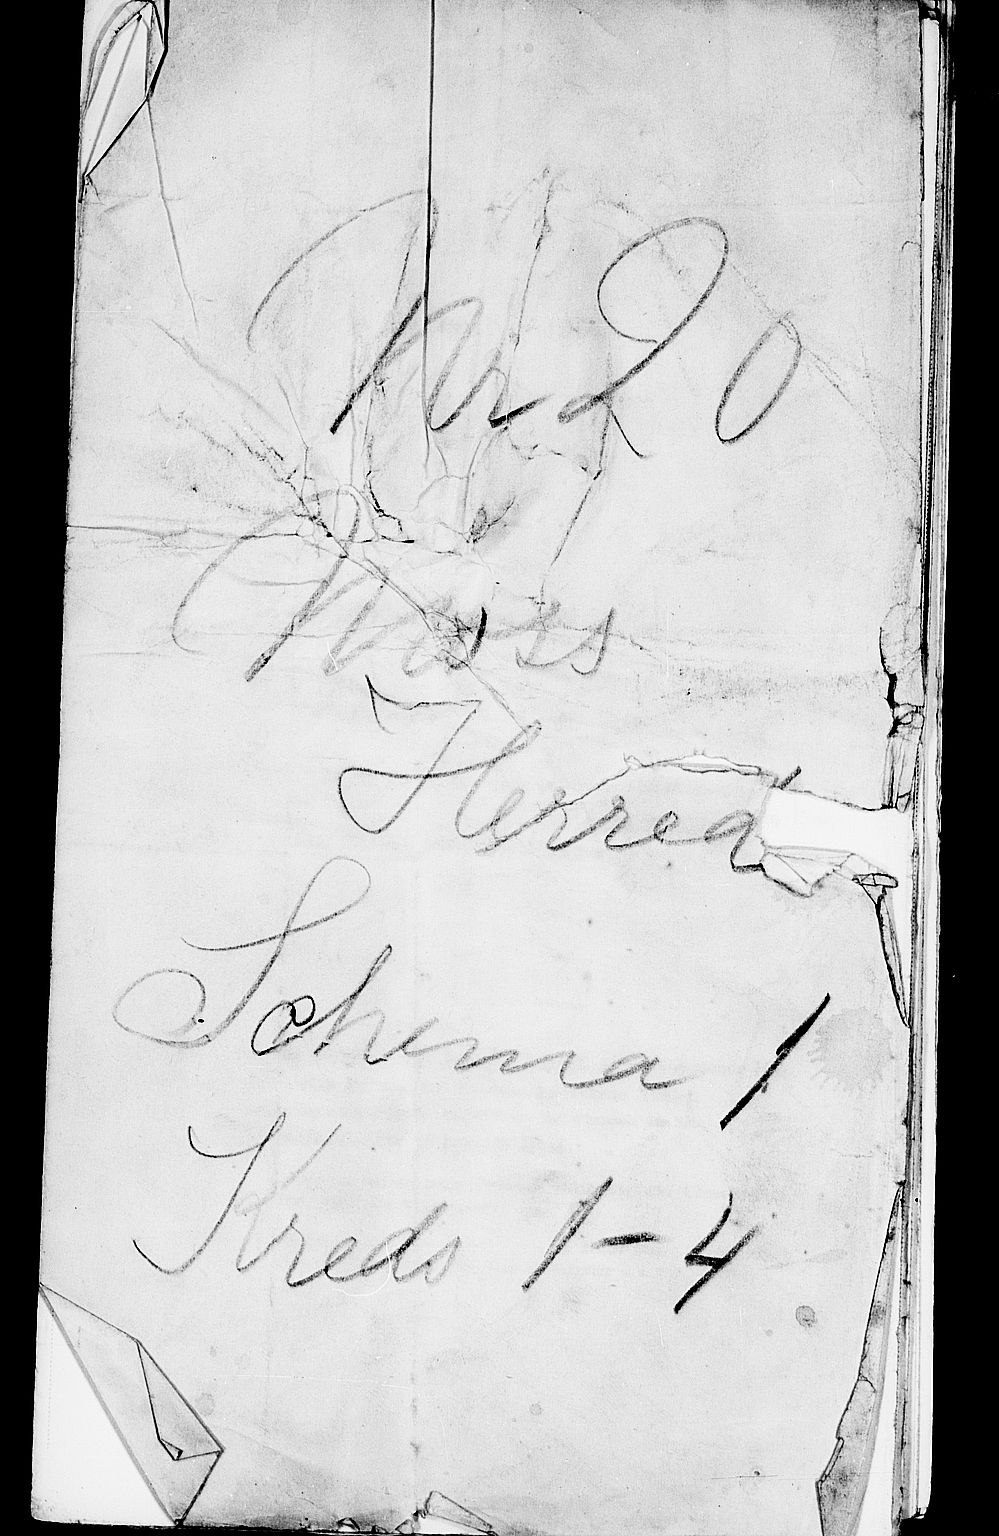 Nr 20
Næss
Herred
Schema 1
Kreds 1-4